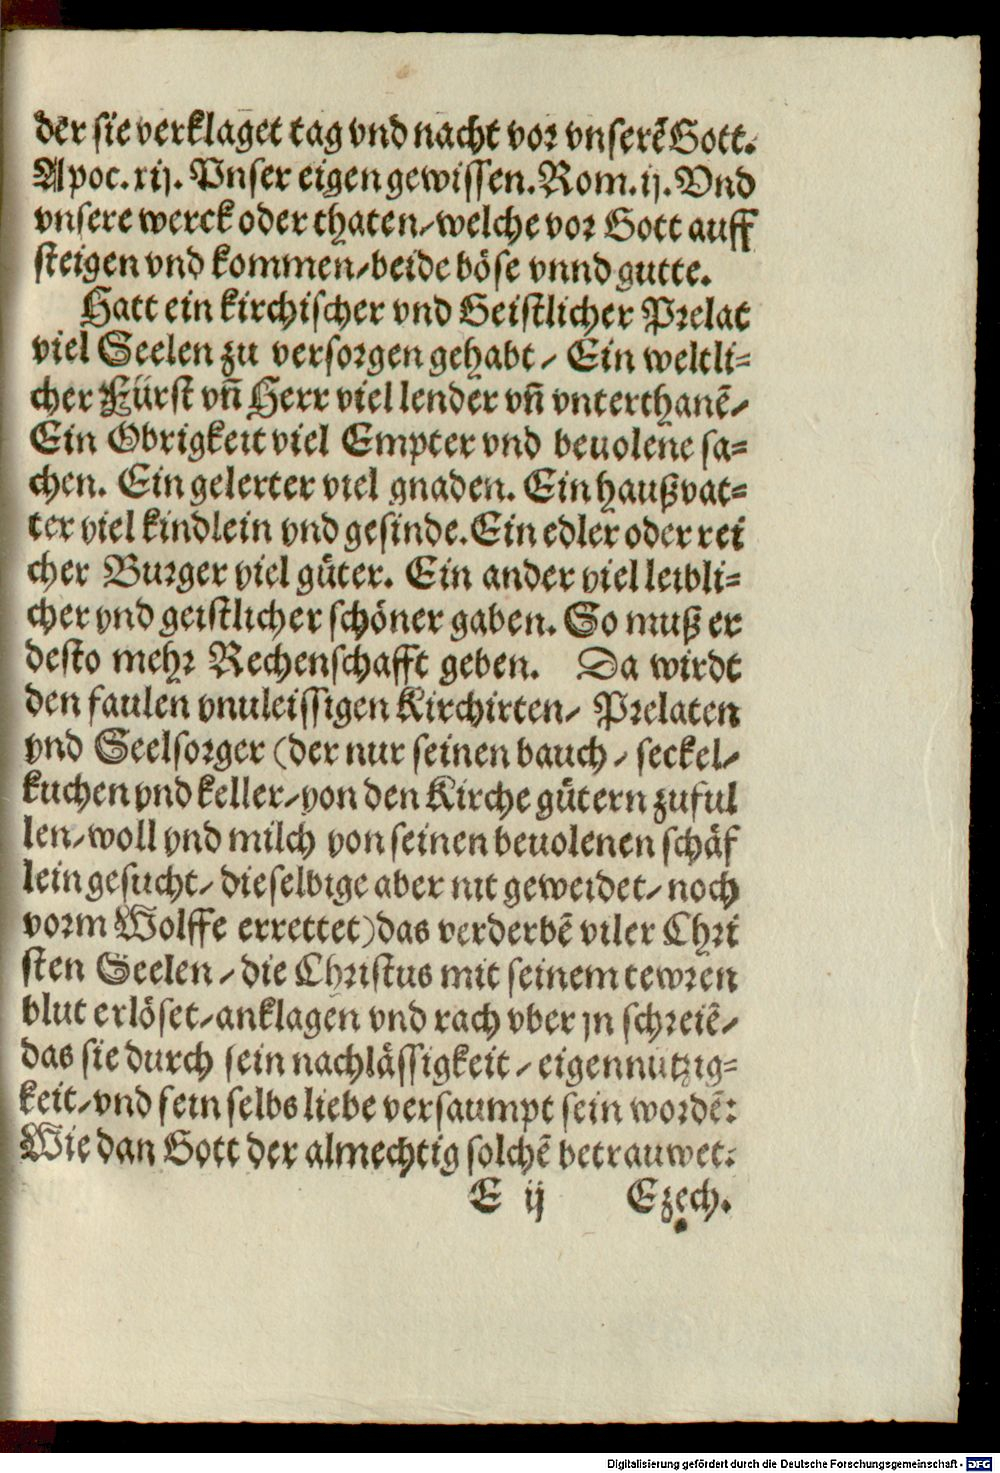 der sie verklaget tag vnd nacht vor vnserẽ Gott.
Apoc. xij. Vnser eigen gewissen. Rom. ij. Vnd
vnsere werck oder thaten/ welche vor Gott auff
steigen vnd kommen/ beide böse vnnd gutte.
Hatt ein kirchischer vnd Geistlicher Prelat
viel Seelen zu versorgen gehabt/ Ein weltli=
cher Fürst vñ Herr viel lender vñ vnterthanẽ/
Ein Obrigkeit viel Empter vnd beuolene sa=
chen. Ein gelerter viel gnaden. Ein haußvat=
ter viel kindlein vnd gesinde. Ein edler oder rei
cher Burger viel güter. Ein ander viel leibli=
cher vnd geistlicher schöner gaben. So muß er
desto mehr Rechenschafft geben. Da wirdt
den faulen vnuleissigen Kirchirten/ Prelaten
vnd Seelsorger (der nur seinen bauch/ seckel/
kuchen vnd keller/ von den Kirche gütern zuful
len/ woll vnd milch von seinen beuolenen schäf
lein gesucht/ dieselbige aber nit geweidet/ noch
vorm Wolffe errettet) das verderbẽ viler Chri
sten Seelen/ die Christus mit seinem tewren
blut erlöset/ anklagen vnd rach vber jn schreiẽ/
das sie durch sein nachlässigkeit/ eigennützig=
keit/ vnd sein selbs liebe versaumpt sein wordẽ:
Wie dan Gott der almechtig solchẽ betrauwet.
E ij Ezech.
Digitalisierung gefördert durch die Deutsche Forschungsgemeinschaft - DFG